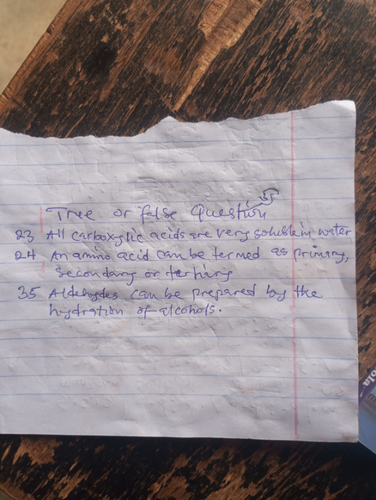 True or false Question
23 All carboxylic acids are very soluble in water
24 An amino acid can be termed as primary,
secondary or tertiary
35 Aldehydes can be prepared by the
hydration of alcohols.